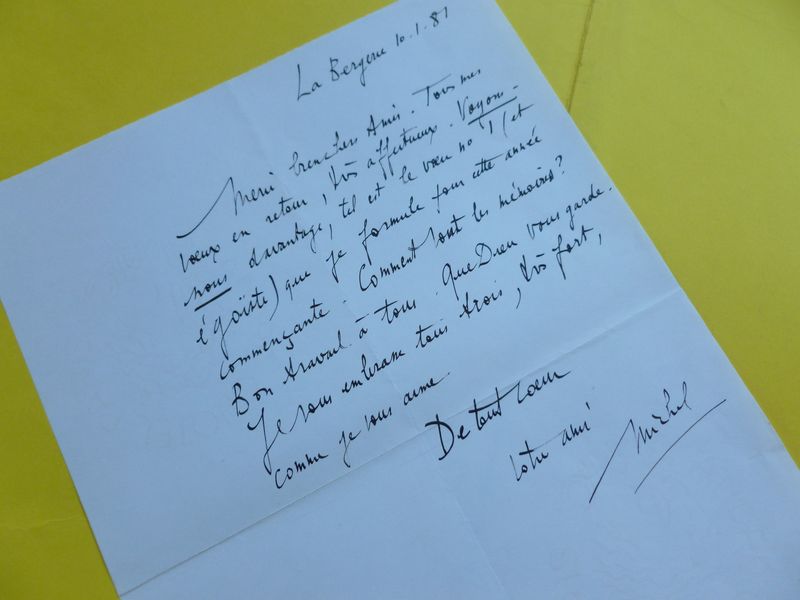 La Bergerie 10.1.81
Merci bien chers Amis. Tous mes
vœux en retour, très affectueux. Voyons-
nous davantage, tel est le vœu no 1 (et
égoïste) que je formule pour cette année
commençante. Comment sont les mémoires?
Bon travail à tous. Que Dieu vous garde.
Je vous embrasse tous trois, très fort,
comme je vous aime.
De tout cœur
votre ami
Michel